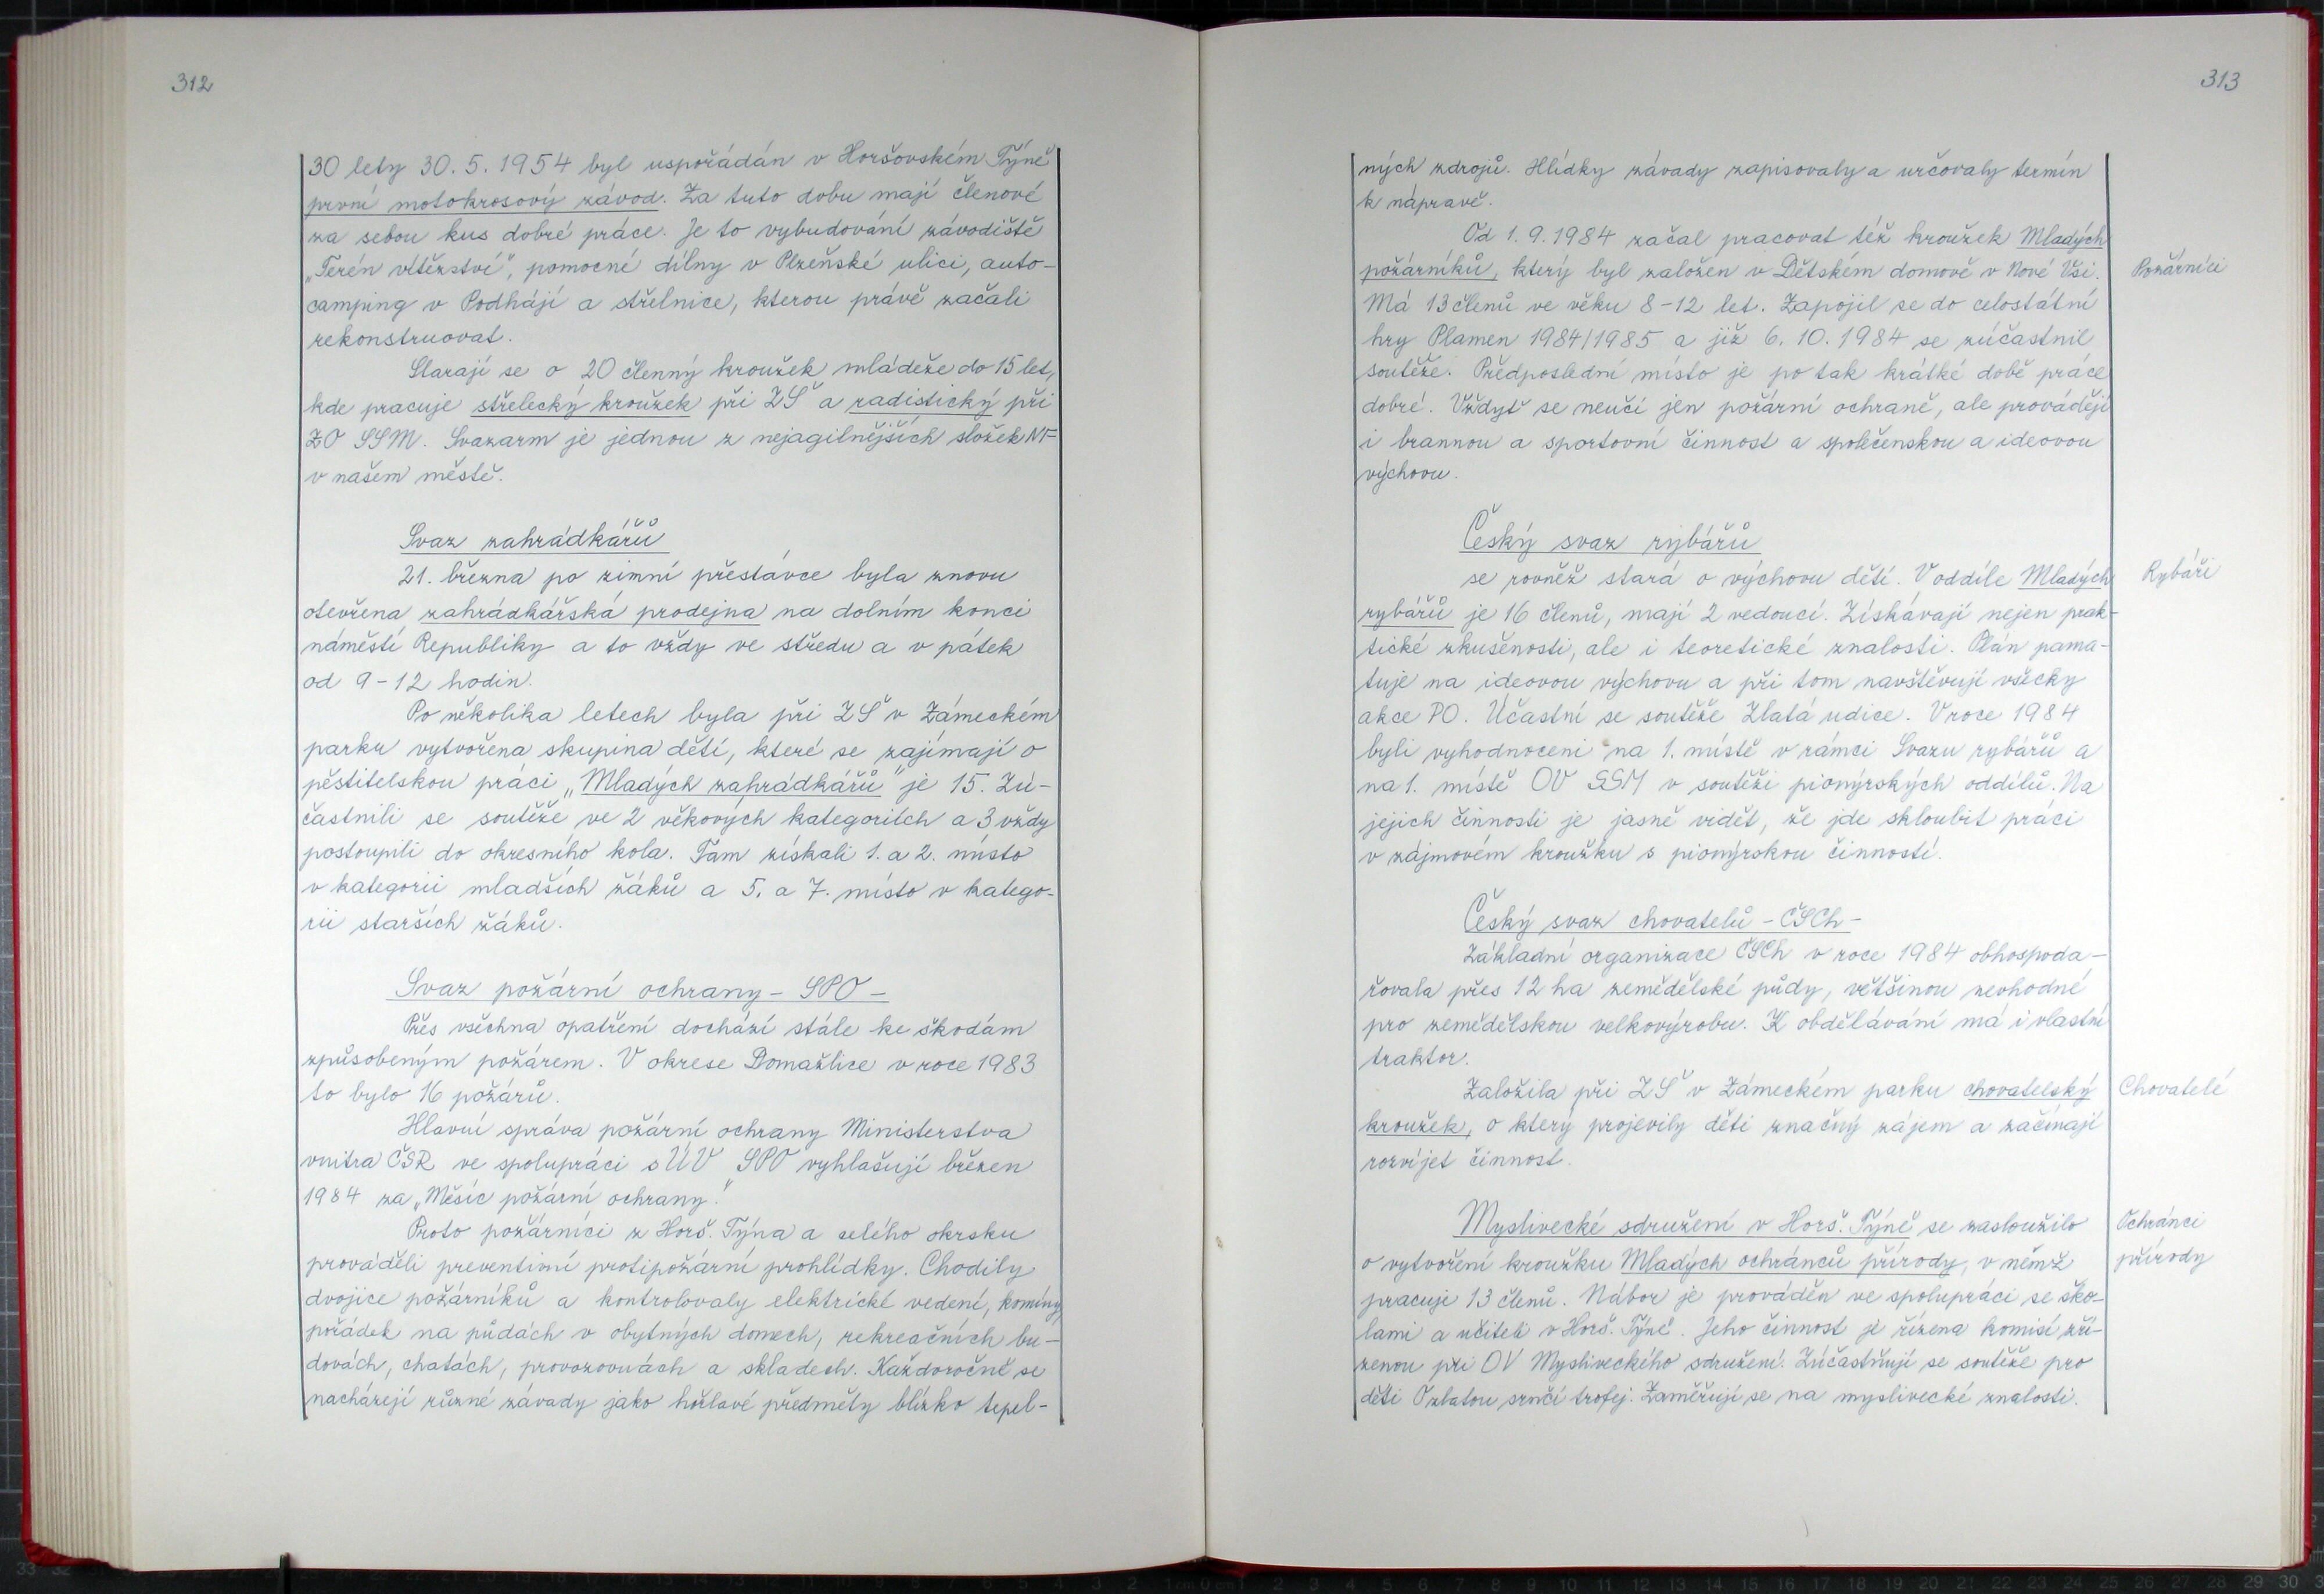 312
30 lety 30. 5. 1954 byl uspořádán v Horšovském Týně
první motokrosový závod. Za tuto dobu mají členové
za sebou kus dobré práce. Je to vybudování závodiště
„Terén vítězství", pomocné dílny v Plzeňské ulici, auto-
camping v Podhájí a střelnice, kterou právě začali
rekonstruovat.
Starají se o 20 členný kroužek mládeže do 15 let,
kde pracuje střelecký kroužek při ZŠ a radistický při
ZO SSM. Svazarm je jednou z nejagilnějších složek NF
v našem městě.
Svaz zahrádkářů
21. března po zimní přestávce byla znovu
otevřena zahrádkářská prodejna na dolním konci
náměstí Republiky a to vždy ve středu a v pátek
od 9-12 hodin.
Po několika letech byla při ZŠ v Zámeckém
parku vytvořena skupina dětí, které se zajímají o
pěstitelskou práci „Mladých zahrádkářů" je 15. Zú-
častnili se soutěže ve 2 věkových kategoriích a 3 vždy
postoupili do okresního kola. Tam získali 1. a 2. místo
v kategorii mladších žáků a 5. a 7. místo v katego-
rii starších žáků.
Svaz požární ochrany - SPO -
Přes všechna opatření dochází stále ke škodám
způsobeným požárem. V okrese Domažlice v roce 1983
to bylo 16 požárů.
Hlavní správa požární ochrany Ministerstva
vnitra ČSR ve spolupráci s ÚV SPO vyhlašují březen
1984 za „Měsíc požární ochrany."
Proto požárníci z Horš. Týna a celého okrsku
prováděli preventivní protipožární prohlídky. Chodily
dvojice požárníků a kontrolovaly elektrické vedení, komíny,
pořádek na půdách v obytných domech, rekreačních bu-
dovách, chatách, provozovnách a skladech. Každoročně se
nacházejí různé závady jako hořlavé předměty blízko tepel-
313
ných zdrojů. Hlídky závady zapisovaly a určovaly termín
k nápravě.
Od 1. 9. 1984 začal pracovat též kroužek Mladých
požárníků, který byl založen v Dětském domově v Nové Vsi.
Požárníci
Má 13 členů ve věku 8-12 let. Zapojil se do celostátní
hry Plamen 1984/1985 a již 6. 10. 1984 se zúčastnil
soutěže. Předposlední místo je po tak krátké době práce
dobré. Vždyť se neučí jen požární ochraně, ale provádějí
i brannou a sportovní činnost a společenskou a ideovou
výchovu.
Český svaz rybářů
se rovněž stará o výchovu dětí. V oddíle Mladých
Rybáři
rybářů je 16 členů, mají 2 vedoucí. Získávají nejen prak-
tické zkušenosti, ale i teoretické znalosti. Plán pama-
tuje na ideovou výchovu a při tom navštěvují všecky
akce PO. Účastní se soutěže Zlatá udice. V roce 1984
byli vyhodnoceni na 1. místě v rámci Svazu rybářů a
na 1. místě OV SSM v soutěži pionýrských oddílů. Na
jejich činnosti je jasně vidět, že jde skloubit práci
v zájmovém kroužku s pionýrskou činností.
Český svaz chovatelů - ČSCh -
Základní organizace ČSCh v roce 1984 obhospoda-
řovala přes 12 ha zemědělské půdy, většinou nevhodné
pro zemědělskou velkovýrobu. K obdělávání má i vlastní
traktor.
Založila při ZŠ v Zámeckém parku chovatelský
Chovatelé
kroužek, o který projevily děti značný zájem a začínají
rozvíjet činnost.
Myslivecké sdružení v Horš. Týně se zasloužilo
Ochránci
o vytvoření kroužku Mladých ochránců přírody, v němž
přírody
pracuje 13 členů. Nábor je prováděn ve spolupráci se ško-
lami a učiteli v Horš. Týně. Jeho činnost je řízena komisí zří-
zenou při OV Mysliveckého sdružení. Zúčastňují se soutěže pro
děti O zlatou srnčí trofej. Zaměřují se na myslivecké znalosti.